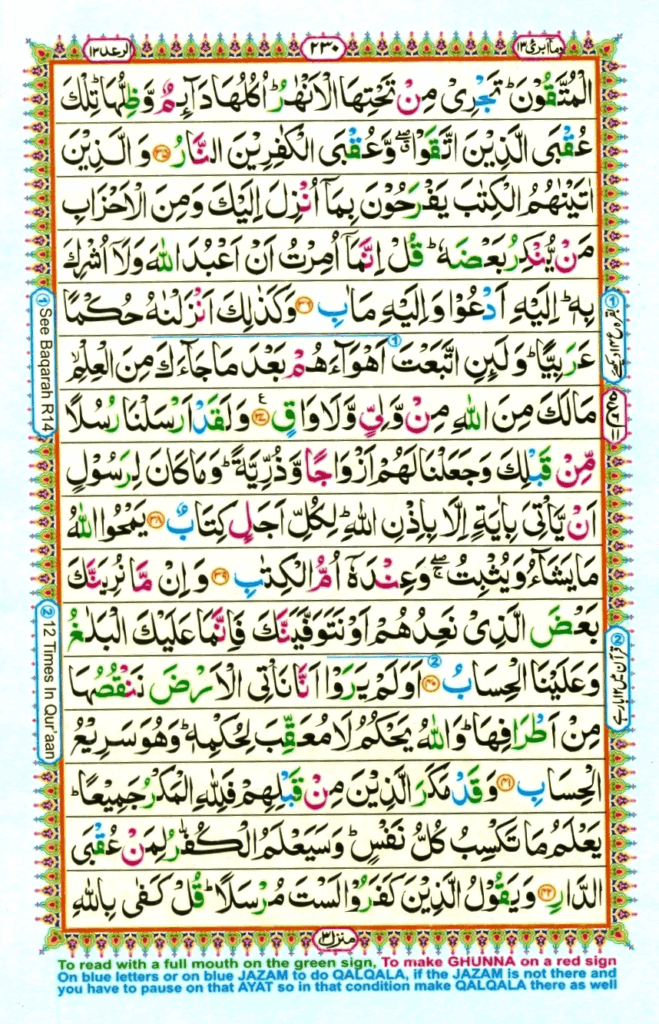 وما ابرئ ١٣
٢٣٠
الرعد ١٣
الْمُتَّقُوْنَ ؕ تَجْرِىْ مِنْ تَحْتِهَا الْاَنْهٰرُ ؕ اُكُلُهَا دَآئِمٌ وَّظِلُّهَا ؕ تِلْكَ
عُقْبَى الَّذِيْنَ اتَّقَوْا ۖ وَّعُقْبَى الْكٰفِرِيْنَ النَّارُ ﴿۳۵﴾ وَالَّذِيْنَ
اٰتَيْنٰهُمُ الْكِتٰبَ يَفْرَحُوْنَ بِمَاۤ اُنْزِلَ اِلَيْكَ وَمِنَ الْاَحْزَابِ
مَنْ يُّنْكِرُ بَعْضَهٗ ؕ قُلْ اِنَّمَاۤ اُمِرْتُ اَنْ اَعْبُدَ اللّٰهَ وَلَاۤ اُشْرِكَ
بِهٖ ؕ اِلَيْهِ اَدْعُوْا وَاِلَيْهِ مَاٰبِ ﴿۳۶﴾ وَكَذٰلِكَ اَنْزَلْنٰهُ حُكْمًا
عَرَبِيًّا ؕ وَلَئِنِ اتَّبَعْتَ اَهْوَآءَهُمْ بَعْدَ مَا جَآءَكَ مِنَ الْعِلْمِ ۙ
مَا لَكَ مِنَ اللّٰهِ مِنْ وَّلِىٍّ وَّلَا وَاقٍ ﴿۳۷﴾ وَلَقَدْ اَرْسَلْنَا رُسُلًا
مِّنْ قَبْلِكَ وَجَعَلْنَا لَهُمْ اَزْوَاجًا وَّذُرِّيَّةً ؕ وَمَا كَانَ لِرَسُوْلٍ
اَنْ يَّاْتِىَ بِاٰيَةٍ اِلَّا بِاِذْنِ اللّٰهِ ؕ لِكُلِّ اَجَلٍ كِتَابٌ ﴿۳۸﴾ يَمْحُوا اللّٰهُ
مَا يَشَآءُ وَيُثْبِتُ ۖۚ وَعِنْدَهٗۤ اُمُّ الْكِتٰبِ ﴿۳۹﴾ وَاِنْ مَّا نُرِيَنَّكَ
بَعْضَ الَّذِىْ نَعِدُهُمْ اَوْ نَتَوَفَّيَنَّكَ فَاِنَّمَا عَلَيْكَ الْبَلٰغُ
وَعَلَيْنَا الْحِسَابُ ﴿۴۰﴾ اَوَلَمْ يَرَوْا اَنَّا نَاْتِى الْاَرْضَ نَنْقُصُهَا
مِنْ اَطْرَافِهَا ؕ وَاللّٰهُ يَحْكُمُ لَا مُعَقِّبَ لِحُكْمِهٖ ؕ وَهُوَ سَرِيْعُ
الْحِسَابِ ﴿۴۱﴾ وَقَدْ مَكَرَ الَّذِيْنَ مِنْ قَبْلِهِمْ فَلِلّٰهِ الْمَكْرُ جَمِيْعًا ؕ
يَعْلَمُ مَا تَكْسِبُ كُلُّ نَفْسٍ ؕ وَسَيَعْلَمُ الْكُفّٰرُ لِمَنْ عُقْبَى
الدَّارِ ﴿۴۲﴾ وَيَقُوْلُ الَّذِيْنَ كَفَرُوْا لَسْتَ مُرْسَلًا ؕ قُلْ كَفٰى بِاللّٰهِ
① See Baqarah R14
② 12 Times In Qur'aan
② قرآن میں ۱۲ بار ہے
منزل ٣
To read with a full mouth on the green sign, To make GHUNNA on a red sign
On blue letters or on blue JAZAM to do QALQALA, if the JAZAM is not there and
you have to pause on that AYAT so in that condition make QALQALA there as well